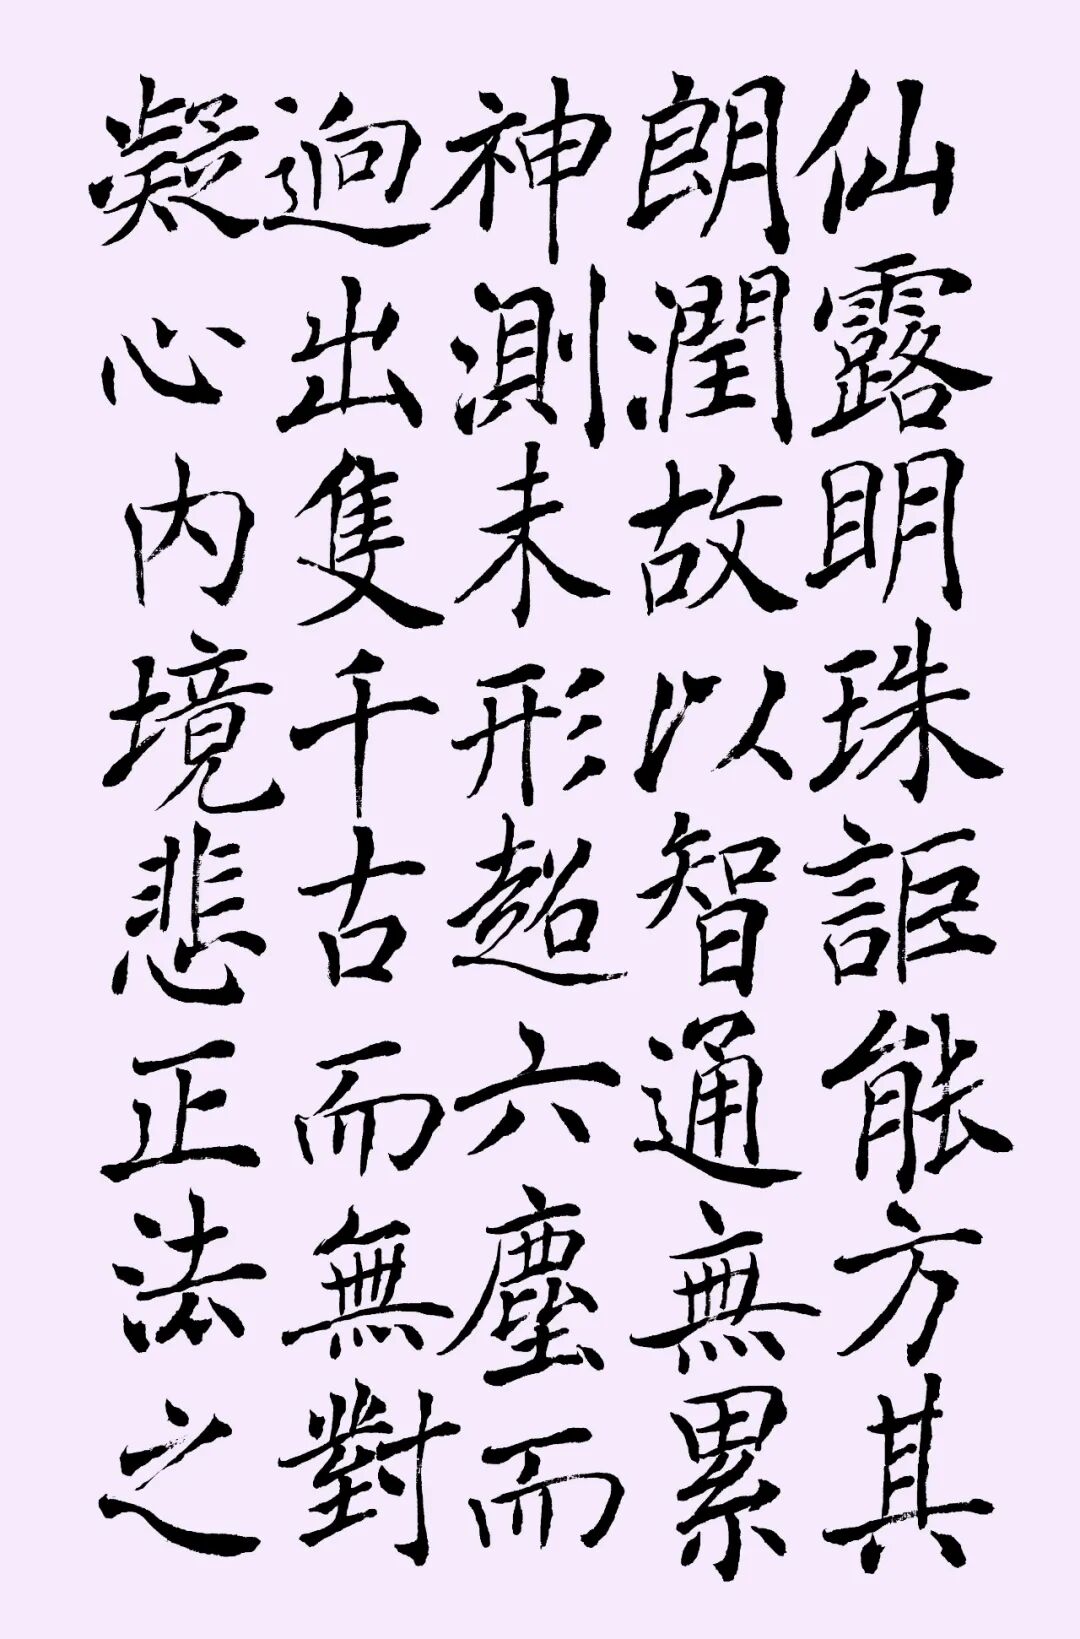 仙露明珠詎能方其
朗潤故以智通無累
神測未形超六塵而
迥出隻千古而無對
凝心內境悲正法之